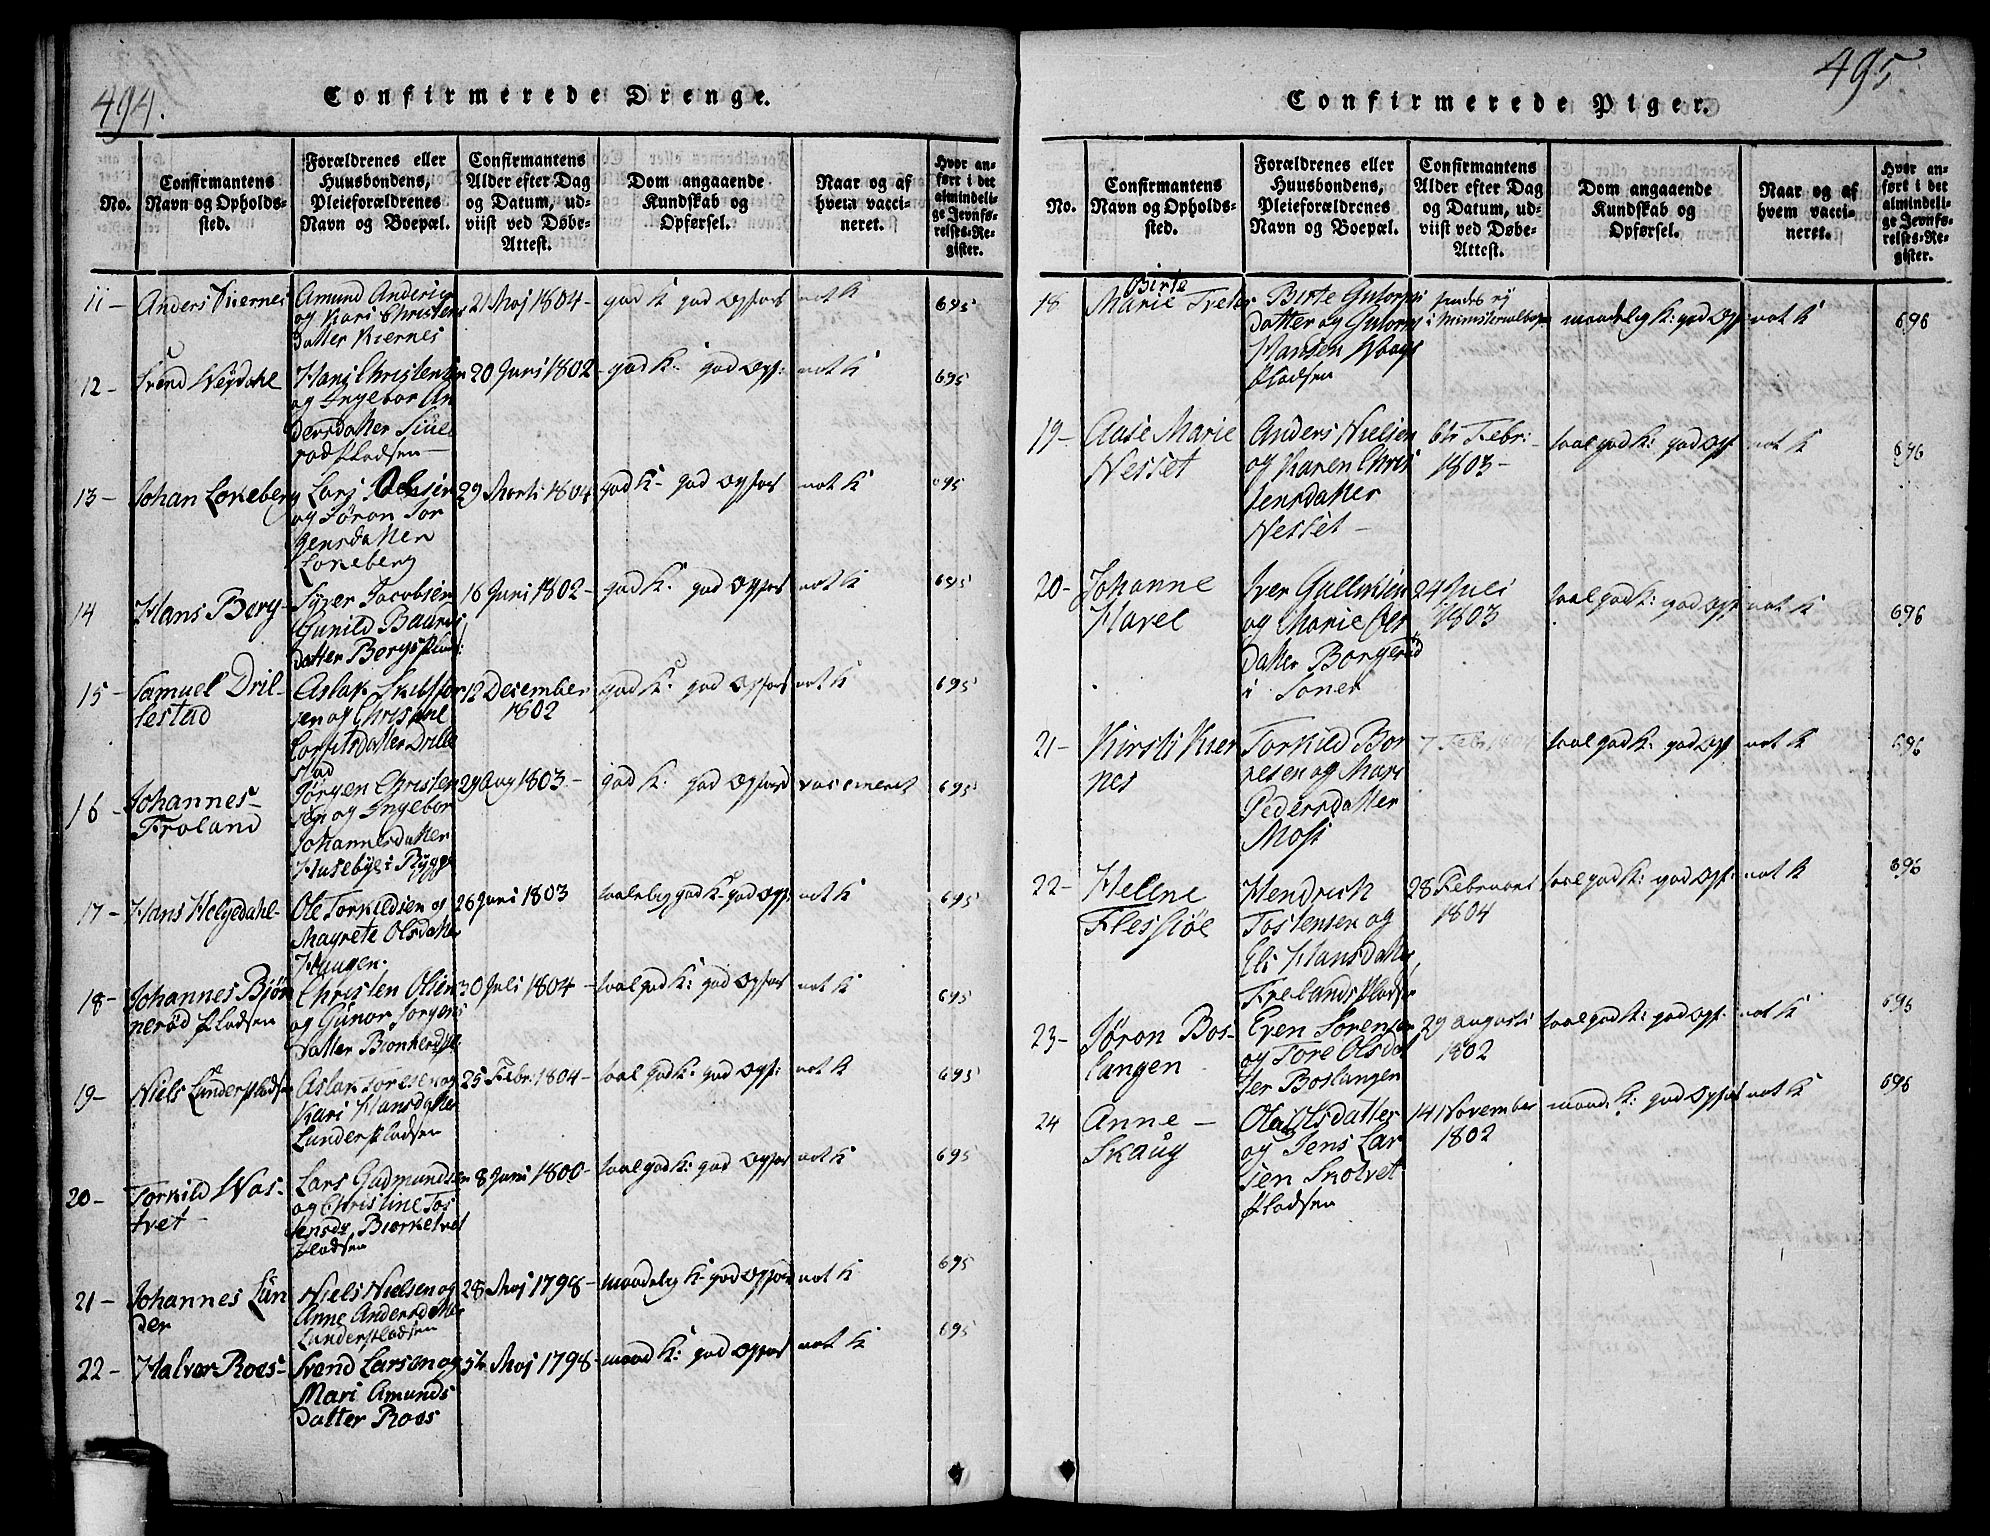 494.
Confirmerede Drenge.
No.
Confirmantens Navn og Opholds-sted.
Forældrenes eller Huusbondens, Pleieforældrenes Navn og Boepæl.
Confirmantens Alder efter Dag og Datum, ud-viist ved Døbe-Attest.
Dom angaaende Kundskab og Opførsel.
Naar og af hvem vacci-neret.
Hvor an-ført i det almindeli-ge Jevnfø-relses-Re-gister.
11 - Anders Kiernes
Amund Anders
og Kari Christens
Datter Kiernes
21 Maj 1804 -
god K god Opførs
not K
695
12 - Svend Weydahl
Hans Christensen
og Ingebor An
dersdatter
Pladsen -
20 Juni 1802 -
god K: god Opf:
not K
695
13 - Johan Lokeberg
Lars Olsen
og Søron Jor
gensdatter
Lokeberg
29 Marti 1804
god K - god Opførs
not K
695
14 Hans Berg -
Syver Jacobsen
Gunild Baards
datter Bergs Plads:
16 Juni 1802 -
god K: god Opførs
not K
695
15 - Samuel Dril-
lestad
Aslak
sen og Christine
datter Drille
stad
12 Desember
1802
god K: god Opførs
not K
695
16 - Johannes -
Froland
Jørgen Christen
sen og Ingebor
Johannesdatter
Husebye i Rygge
29 Aug 1803 -
god K: god Opførs
vacsineret
695
17 - Hans Helgedahl -
Ole Torkildsen og
Magrete Olsdatter
Haugen.
26 Juni 1803
god K - god Opf:
not K
695
18 - Johannes Bjøn
nerød Pladsen
Christen Olsen
og Gunor Jorgens
datter
30 Juli 1804 -
taal god K: god Opførs
not K
695
19 - Niels Lunderpladsen
Aslak Toresen og
Kari Hansdatter
Lunderpladsen
25 Febr: 1804 -
taal god K: god Opf:
not K
695
20 - Torkild Was-
tvet
Lars Gudmundsen
og Christine Tos
tensdr Biørketvet
Pladsen
8 Juni 1800 -
taal god K: god Opførs
not K
695
21 - Johannes Lun
der
Niels Nielsen og
Anne Andersdatter
Lunderpladsen
28 Maj 1798 -
maadelig K - god Opførs
not K
695
22 - Halvor Roes -
Svend Larsen og
Mari Amunds
datter Roos
Maj 1798 -
maad K: god Opførs
not K
695
495.
Confirmerede Piger.
No.
Confirmantens Navn og Opholds-sted.
Forældrenes eller Huusbondens, Pleieforældrenes Navn og Boepæl.
Confirmantens Alder efter Dag og Datum, ud-viist ved Døbe-Attest.
Dom angaaende Kundskab og Opførsel.
Naar og af hvem vacci-neret.
Hvor an-ført i det almindeli-ge Jevnfø-relses-Re-gister.
18 Birte
Marie Tveter
Birte Gulorps
datter og Gulorm
Hansen
Pladsen
findes ej
i Ministerialbogen
maadelig K: god Opf
not K
696
19 - Aase Marie
Nesset
Anders Nielsen
og Karen Chris
tensdatter
Nesset -
6te Febr: -
1803 -
taal god K: god Opf
not K
696
20 - Johanne
Havel
Iver Gullmsen
og Marie Ols
datter Borgerød
i Soner
24 Juli
1803
taal god K: god Opf
not K
696
21 - Kirsti Kier
nes
Torkild Bor
resen og Mari
Pedersdatter
Moss
7 Feb
taal god K: god Opf
not K
696
22 - Hellne
Flesskøe
Hendrich
Tostensen og
Eli Hansdatter
Frelands Pladsen
28 Februari
1804
taal god K: god Opf:
not K
696
23 - Jøron Bos-
langen
Even Sorensen
og Tore Olsdat
ter Boslangen
29 augusti
1802
taal god K: god Opf:
not K
695
24 Anne -
Skaug
Olea Olsdatter
og Jens Lar
sen Skotvet
Pladsen
14 November
1802
maad K: god Opførs
not K
696